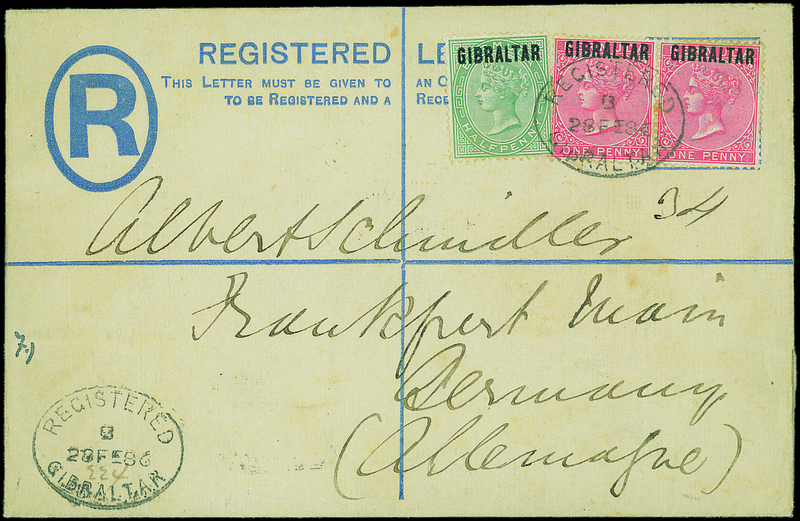 REGISTERED LE
THIS LETTER MUST BE GIVEN TO AN O
TO BE REGISTERED AND A RECE
R
GIBRALTAR
HALFPENNY
GIBRALTAR
ONE PENNY
GIBRALTAR
ONE PENNY
REGISTERED
B
28 FE 86
GIBRALTAR
34
Albert Schindler
Frankfurt Main
Germany
(Allemagne)
7.)
REGISTERED
B
28 FE 86
224
GIBRALTAR